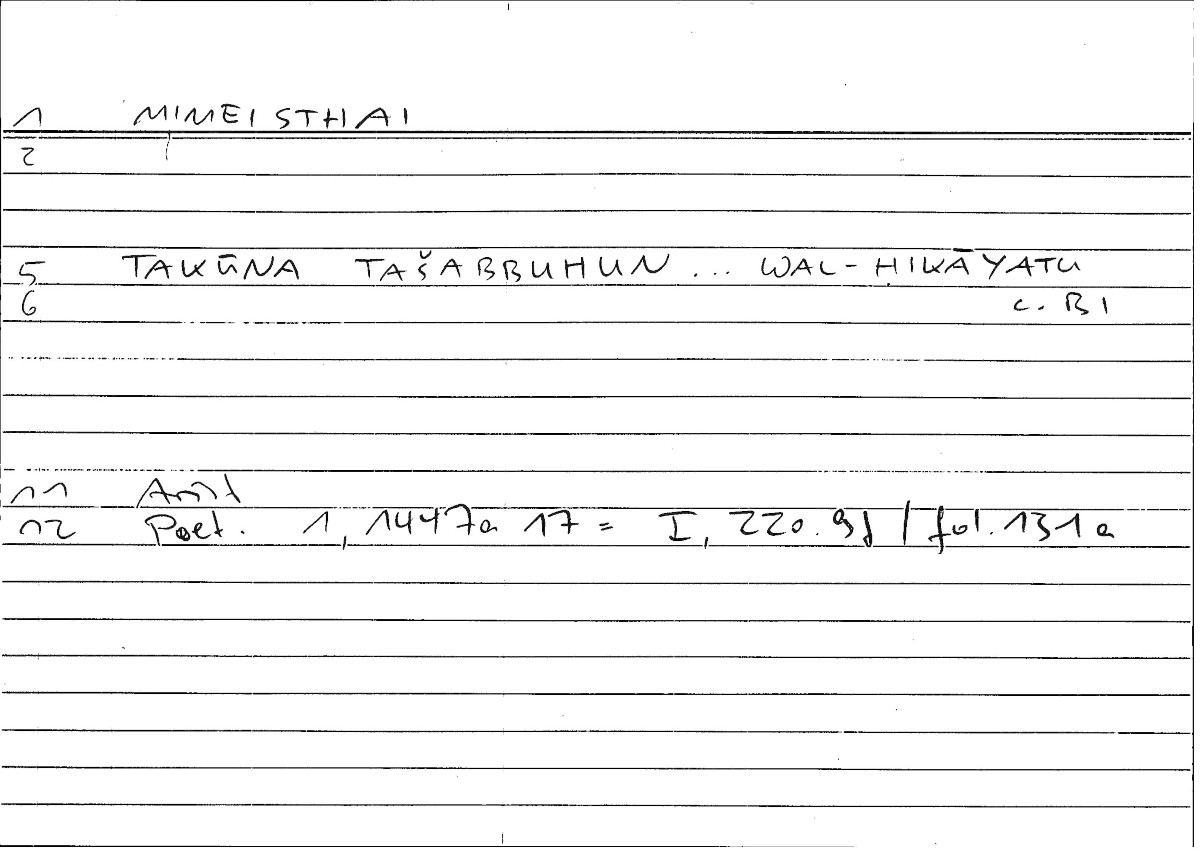 1 MIMEISTHAI
2
5 TAKŪNA TAŠABBUHUN ... WAL-ḤIKĀYATU
6 c. BI
11 Arist
12 Poet. 1, 1447a 17 = I, 220.9f / fol. 131a